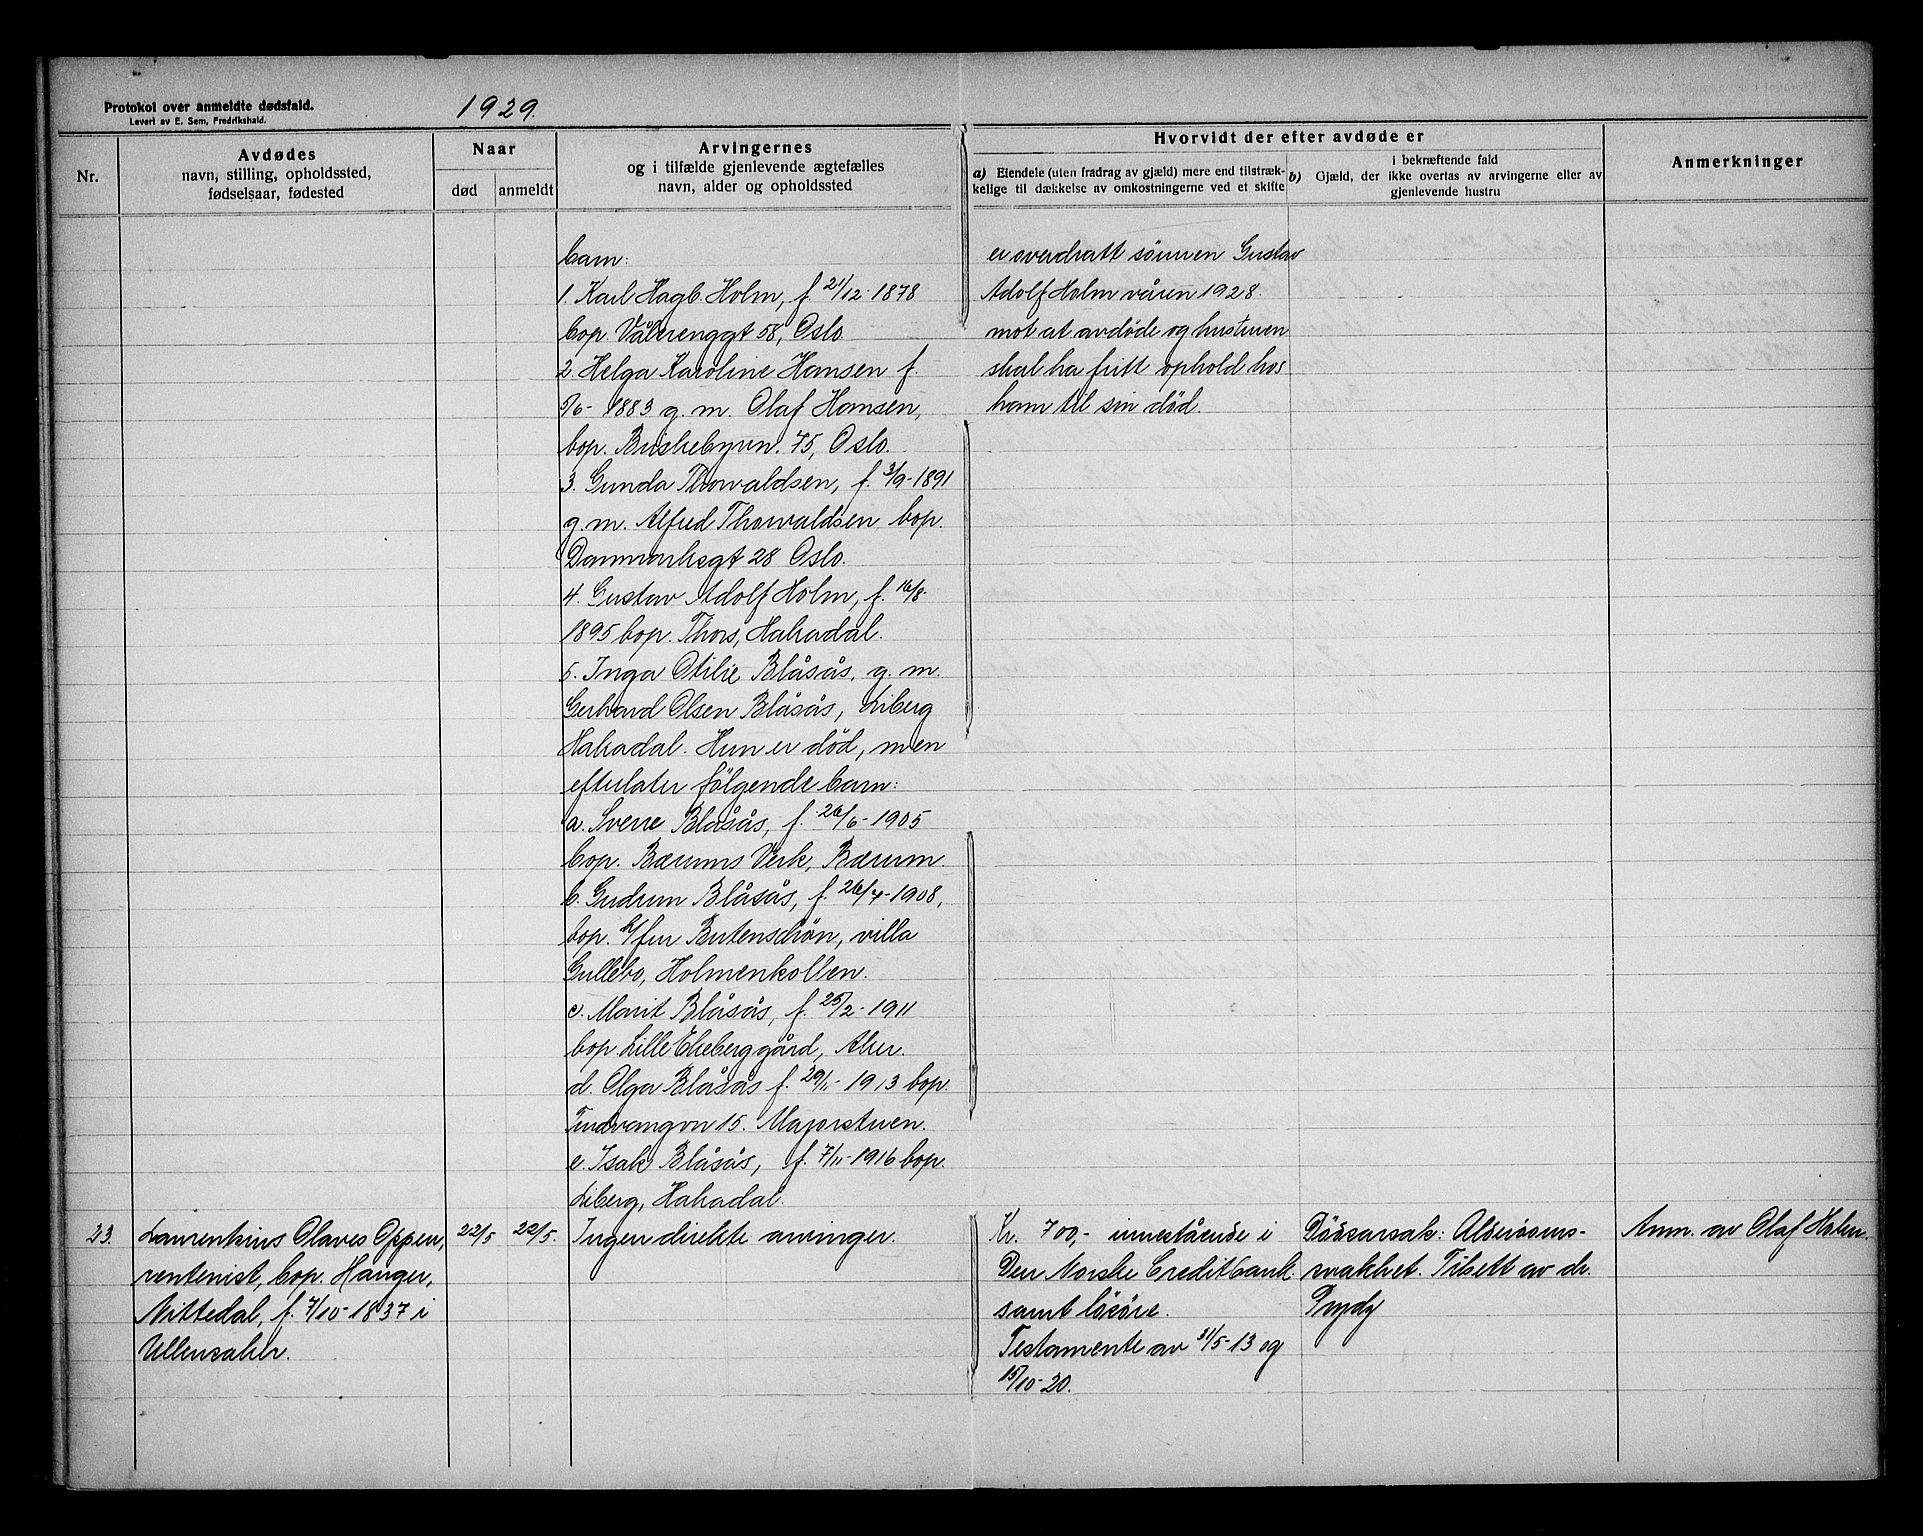 Protokol over anmeldte dødsfald.
Levert av E. Sem, Fredrikshald.
1929.
Nr.
Avdødes
navn, stilling, opholdssted,
fødselsaar, fødested
Naar
død
anmeldt
Arvingernes
og i tilfælde gjenlevende ægtefælles
navn, alder og opholdssted
Hvorvidt der efter avdøde er
a) Eiendele (uten fradrag av gjæld) mere end tilstræk-
kelige til dækkelse av omkostningerne ved et skifte
i bekræftende fald
b) Gjæld, der ikke overtas av arvingerne eller av
gjenlevende hustru
Anmerkninger
barn:
1. Karl Hagb. Holm, f. 21/12-1878
bop. Vålerenggt 58, Oslo.
2. Helga Karoline Hansen f.
5/6-1883 g. m. Olaf Hansen,
bop. Buskebyvn. 75, Oslo.
3. Gunda Thorvaldsen, f. 3/9-1891
g. m. Alfred Thorvaldsen bop.
Danmarksgt 28 Oslo.
4. Gustav Adolf Holm, f. 16/8-
1895 bop. Thors, Hakadal.
5. Inga Otilie Blåsås, g. m.
Gerhard Olsen Blåsås, Liberg
Hakadal. Hun er død, men
efterlater følgende barn:
a. Sverre Blåsås, f. 26/6-1905
bop. Bærums Verk, Bærum.
b. Gudrun Blåsås, f. 26/4-1908,
bop. h/fru Butenschön, villa
Gullebo, Holmenkollen.
c. Marit Blåsås, f. 25/2-1911
bop. Lille Ekeberg gård, Aker.
d. Olga Blåsås f. 29/11-1913 bop.
Tuavangvn 15. Majorstuen.
e. Isak Blåsås, f. 7/11-1916 bop.
Liberg, Hakadal.
er overdratt sønnen Gustav
Adolf Holm våren 1928
mot at avdøde og hustruen
skal ha fritt ophold hos
ham til sin død.
23.
Laurentius Olaves Oppen,
rentenist, bop. Hanger,
Nittedal, f. 7/10-1837 i
Ullensaker.
22/5
22/5.
Ingen direkte arvinger.
Kr. 700,- innestående i
Den Norske Creditbank.
samt løsøre.
Testamente av 31/5-13 og
15/10-20.
Dødsarsak: Alderdoms-
svakhet. Tilsett av dr.
Prydz
Anm. av Olaf Holm.